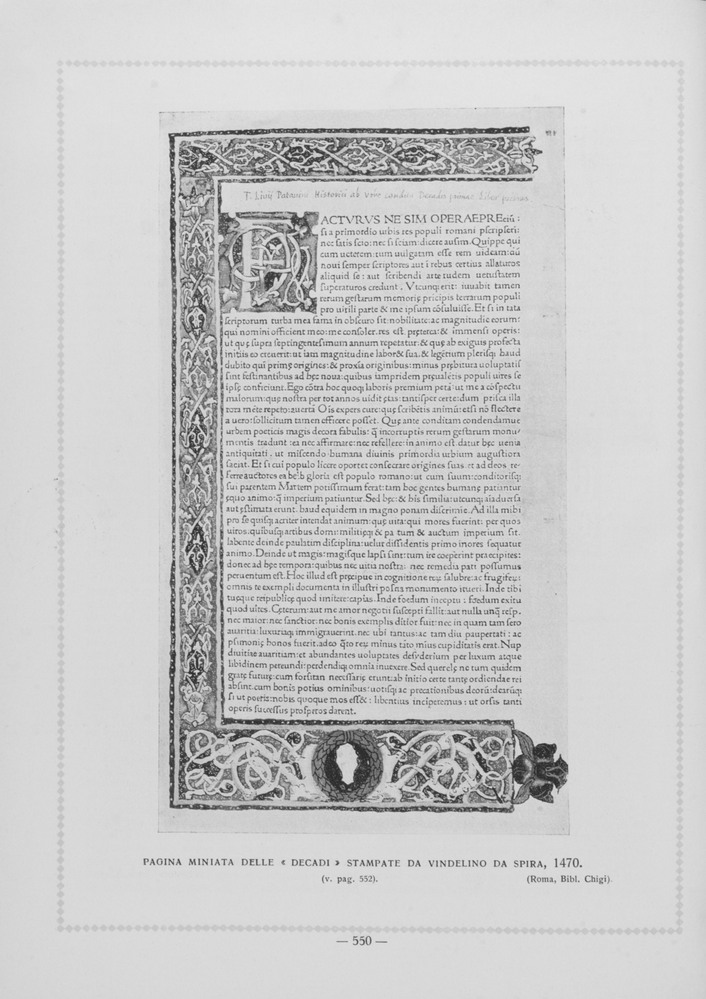 T. Livii Patavini Historici ab Vrbe condita Decadis primae Liber primus
FACTVRVS NE SIM OPERAEPREciũ:
si a primordio urbis res populi romani pſcripſeri:
nec ſatis ſcio: nec ſi ſciam: dicere auſim. Quippe qui
cum ueterem: tum uulgatam eſſe rem uideam: dũ
noui ſemper ſcriptores aut ĩ rebus certius allaturos
aliquid ſe: aut ſcribendi arte rudem uetuſtatem
ſuperaturos credunt. Vtcunq; erit: iuuabit tamen
rerum geſtarum memorię pricipis terrarum populi
pro uirili parte & me ipſum cõſuluiſſe. Et ſi in tata
ſcriptorum turba mea fama in obſcuro ſit: nobilitate: ac magnitudĩe eorum:
qui nomini officient meo: me conſoler. res eſt pręterea: & immenſi operis:
ut quę ſupra ſeptingenteſimum annum repetatur: & quę ab exiguis profecta
initiis eo creuerit: ut iam magnitudine labore& ſua. & legentium pleriſq; haud
dubito quĩ primę origines: & proxĩa originibus: minus prębitura uoluptatiſ
ſint feſtinantibus ad hęc noua: quibus iampridem pręualẽtis populi uires ſe
ipſę conficiunt. Ego cõtra hoc quoq; laboris premium petã: ut me a cõſpectu
malorum: quę noſtra per tot annos uidit ętas: tantiſper certe: dum priſca illa
tota mẽte repeto: auertã O is expers curę: quę ſcribẽtis animũ: etſi nõ flectere
a uero: ſollicitum tamen efficere poſſet. Quę ante conditam condendamue
urbem poeticis magis decora fabulis: q̃ incorruptis rerum geſtarum monu/
mentis tradunt: ea nec affirmare: nec refellere: in animo eſt datur hęc uenia
antiquitati. ut miſcendo humana diuinis primordia urbium auguſtiora
faciat. Et ſi cui populo licere oportet conſecrare origines ſuas et ad deos re-
ferre auctores ea belli gloria eſt populo romano: ut cum ſuum: conditoriſq;
ſui parentem Martem potiſſimum ferat: tam hoc gentes humanę patiuntur
ęquo animo: q̃ imperium patiuntur. Sed hęc: & his ſimilia: utcunq; aiaduerſa
aut ęſtimata erunt. haud equidem in magno ponam diſcrimĩe. Ad illa mihi
pro ſe quiſq; acriter intendat animum: quę uita: qui mores fuerint: per quos
uiros: quibuſq; artibus domi: militięq; & pa tum & auctum imperium ſit.
labente deinde paulatim diſciplina: uelut diſſidentis primo mores ſequatur
animo. Deinde ut magis: magiſque lapſi ſint: tum ire coeperint praecipites:
donec ad hęc tempora: quibus nec uitia noſtra: nec remedia pati poſſumus
peruentum eſt. Hoc illud eſt pręcipue in cognitione reꝝ ſalubre: ac frugiferũ:
omnis te exempli documenta in illuſtri poſita monumento itueri. Inde tibi
tuęque reipublicę quod imitere: capias. Inde foedum inceptu: foedum exitu
quod uites. Cęterum: aut me amor negotii ſuſcepti fallit: aut nulla unq̃ reſp.
nec maior: nec ſanctior: nec bonis exemplis ditior fuit: nec in quam tam ſero
auaritia: luxuriaq; immigrauerint. nec ubi tantus: ac tam diu paupertati: ac
pſimonię bonos fuerit. adeo q̃to reꝝ minus tãto mius cupiditatis erat. Nup
diuitiae auaritiam: et abundantes uoluptates deſyderium per luxum atque
libidinem pereundi: perdendiq; omnia inuexere. Sed querelę ne tum quidem
gratę futurę: cum forſitan neceſſarię erunt: ab initio certe tantę ordiendae rei
abſint. cum bonis potius ominibus: uotiſq; ac precationibus deorũ: dearũq;
ſi ut poetis: nobis quoque mos eſſet: libentius inciperemus: ut orſis tanti
operis ſucceſſus proſperos darent.
PAGINA MINIATA DELLE « DECADI » STAMPATE DA VINDELINO DA SPIRA, 1470.
(v. pag. 552). (Roma, Bibl. Chigi).
— 550 —